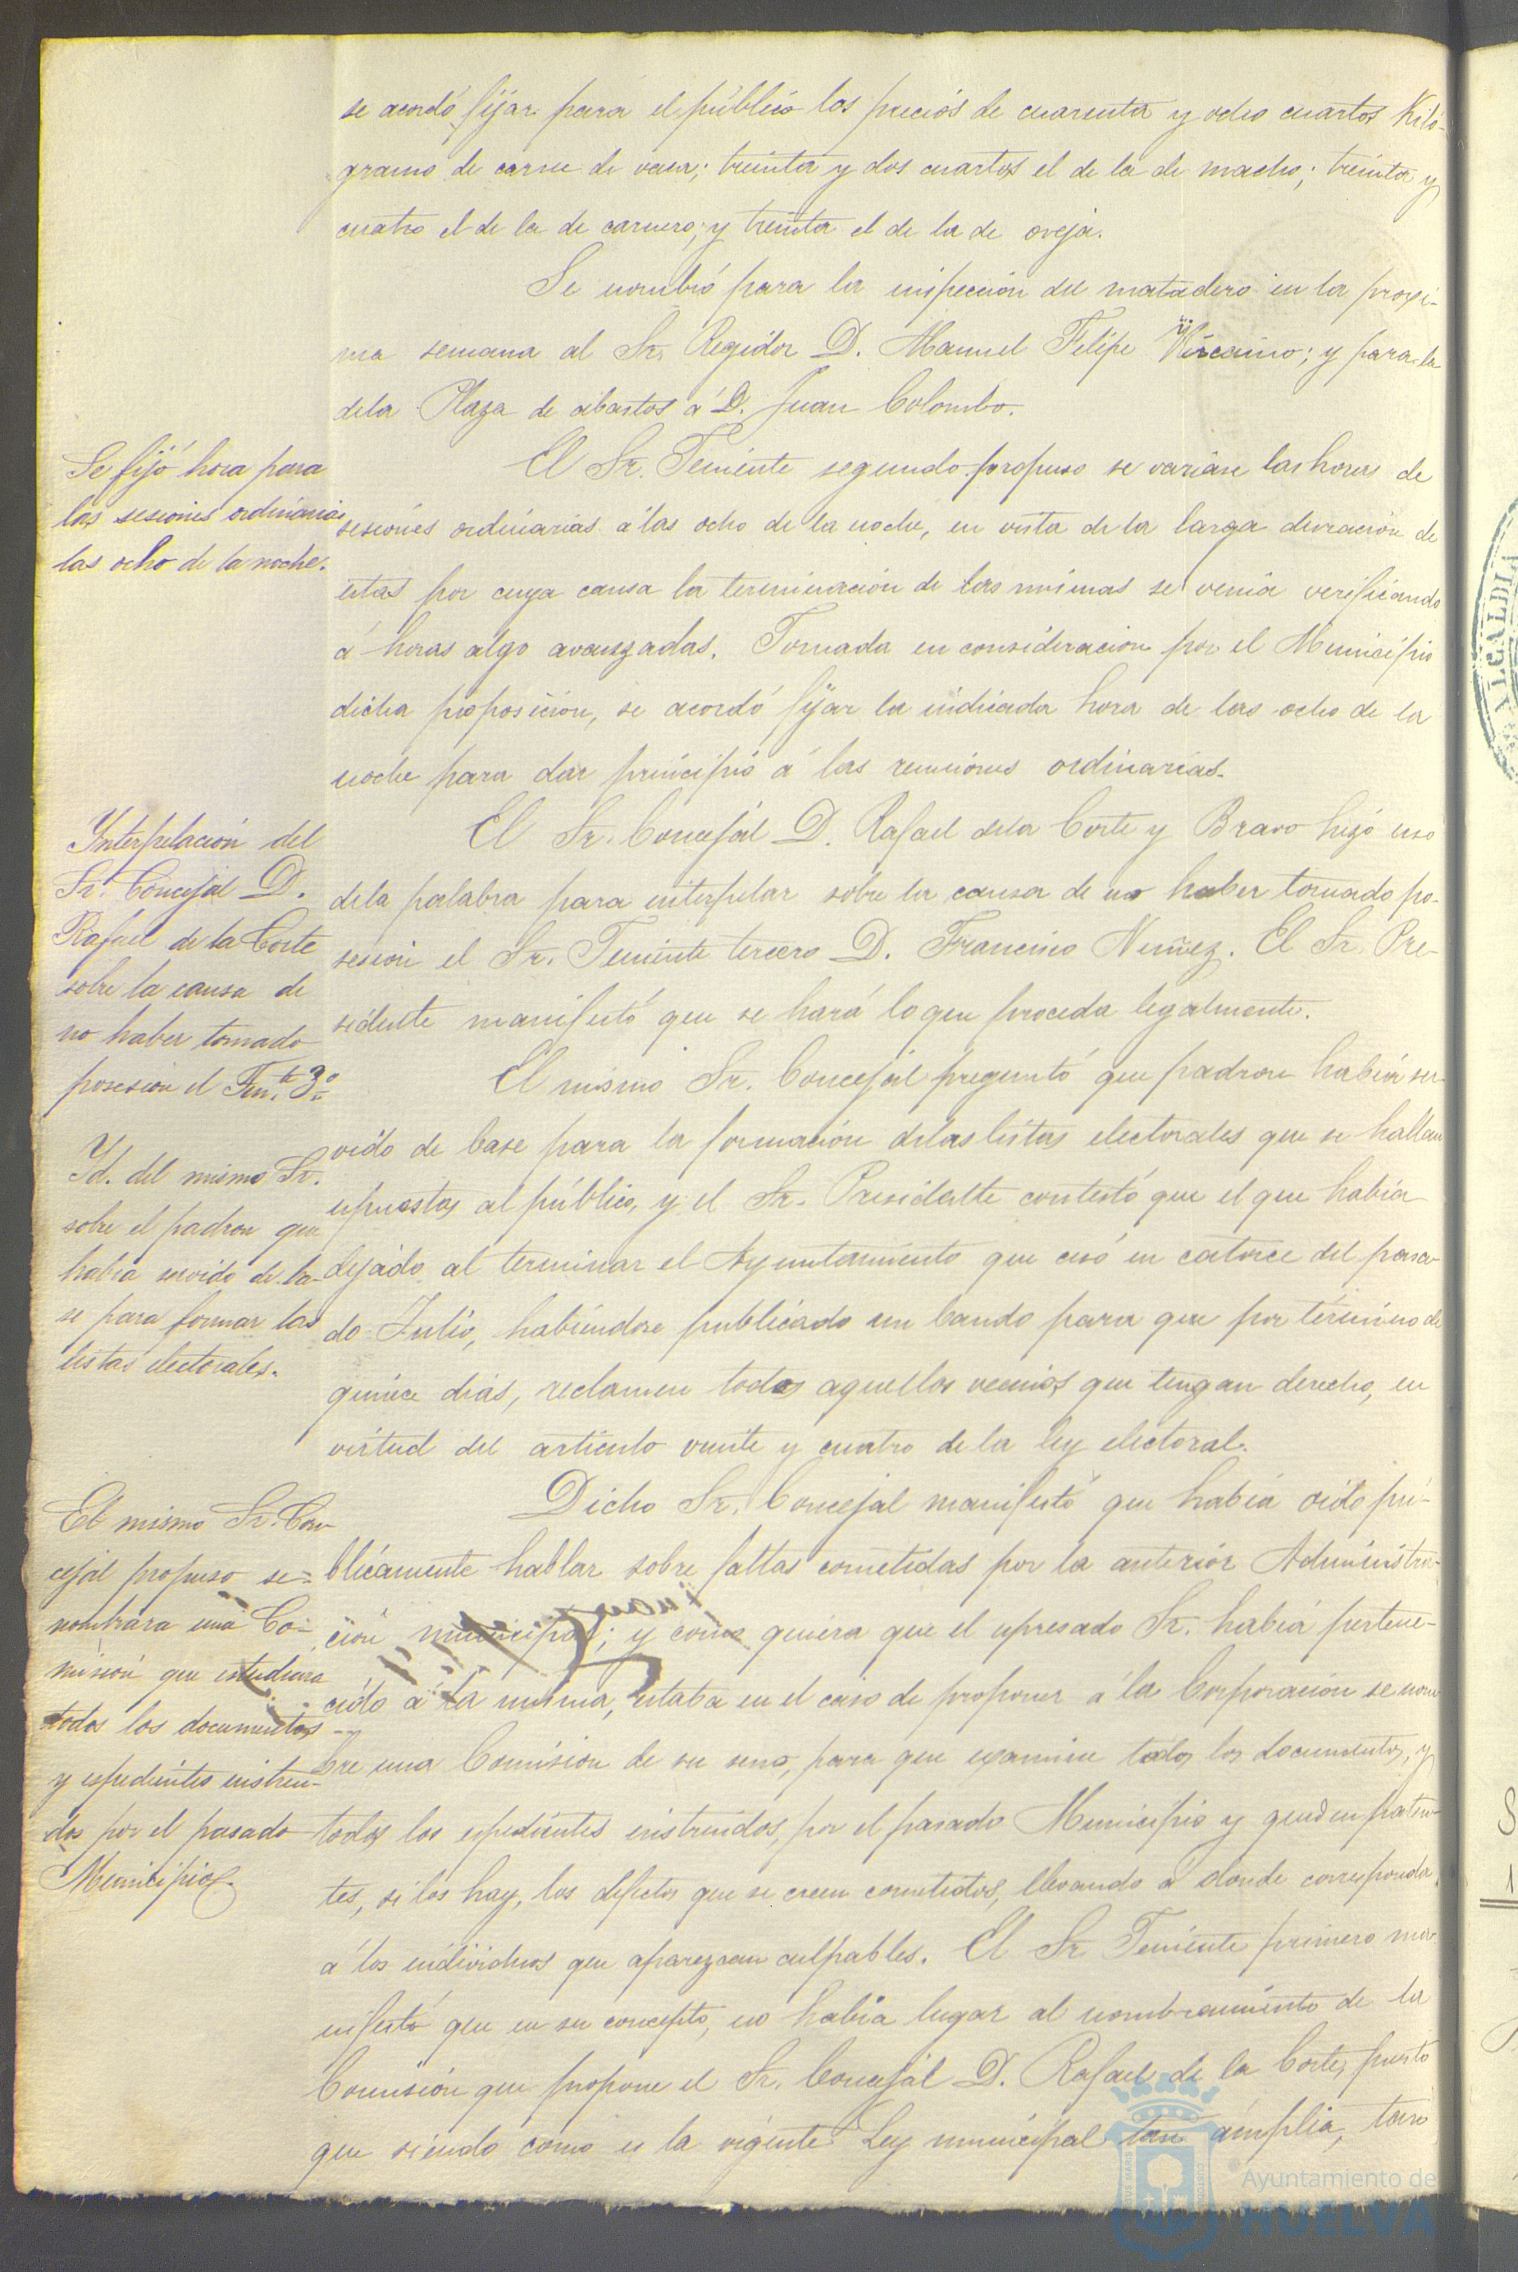 se acordó fijar para el público los precios de cuarenta y ocho cuartos Kiló-
gramo de carne de vaca; treinta y dos cuartos el de la de macho; treinta y
cuatro el de la de carnero; y treinta el de la de oveja.
Se nombró para la inspeccion del matadero en la proxi-
ma semana al Sr. Regidor D. Manuel Felipe Vizcaino; y para la
dela Plaza de abastos a D. Juan Colombo.
Se fijó hora para
las sesiones ordinarias
las ocho de la noche.
El Sr. Teniente segundo propuso se variase las horas de
sesiones ordinarias á las ocho de la noche, en vista de la larga duracion de
estas por cuya causa la terminacion de las mismas se venia verificando
á horas algo avanzadas. Tomada en consideracion por el Municipio
dicha proposicion, se acordó fijar la indicada hora de las ocho de la
noche para dar principio á las reuniones ordinarias.
Interpelacion del
Sr. Concejal D.
Rafael de la Corte
sobre la causa de
no haber tomado
posesion el Tente. 3º
El Sr. Concejal D. Rafael dela Corte y Bravo hizo uso
dela palabra para interpelar sobre la causa de no haber tomado po-
sesion el Sr. Teniente tercero D. Francisco Nuñez. El Sr. Pre-
sidente manifestó que se hará lo que proceda legalmente.
Yd. del mismo Sr.
sobre el padron que
habia servido de ba-
se para formar las
listas electorales.
El mismo Sr. Concejal preguntó que padron habia ser-
vido de base para la formacion delas listas electorales que se hallan
espuestas al público, y el Sr. Presidente contestó que el que habia
dejado al terminar el Ayuntamiento que cesó en catorce del pasa-
do Julio, habiendose publicado un bando para que por término de
quince dias, reclamen todos aquellos vecinos que tengan derecho, en
virtud del articulo veinte y cuatro de la ley electoral.
El mismo Sr. Con-
cejal propuso se
nombrara una Co-
mision que estudiara
todos los documentos
y espedientes instrui-
dos por el pasado
Municipio.
Dicho Sr. Concejal manifestó que habia oido pú-
blicamente hablar sobre faltas cometidas por la anterior Administra-
cion municipal; y como quiera que el espresado Sr. habia pertene-
cido a la misma, estaba en el caso de proponer á la Corporacion se nom-
bre una Comision de su seno, para que examine todos los documentos, y
todos los espedientes instruidos, por el pasado Municipio y queden paten-
tes, si los hay, los defectos que se creen cometidos, llevando a donde corresponda
á los individuos que aparezcan culpables. El Sr. Teniente primero ma-
nifestó que en su concepto, no habia lugar al nombramiento de la
Comision que propone el Sr. Concejal D. Rafael de la Corte, puesto
que siendo como es la vigente Ley municipal tan ámplia, tan
ALCALDIA
Ayuntamiento de
HUELVA